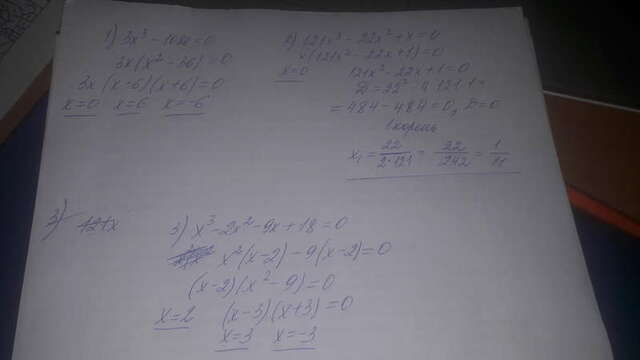 1) 3x³ - 108x = 0
3x(x² - 36) = 0
3x(x-6)(x+6) = 0
x=0 x=6 x=-6
2) 121x³ - 22x² + x = 0
x(121x² - 22x + 1) = 0
x=0 121x² - 22x + 1 = 0
D = 22² - 4·121·1 =
= 484 - 484 = 0, D=0
1 корень
x₁ = 22/2·121 = 22/242 = 1/11
3) 121x
3) x³ - 2x² - 9x + 18 = 0
x²(x-2) - 9(x-2) = 0
(x-2)(x² - 9) = 0
x=2 (x-3)(x+3) = 0
x=3 x=-3